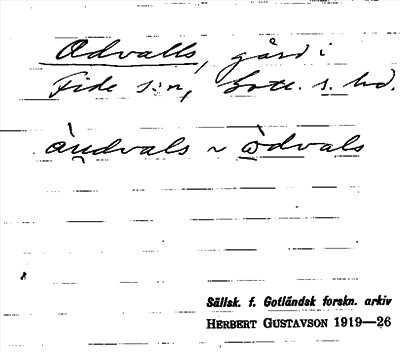 Odvalls, gård i
Fide s:n, Gotl. s. hd.
àu̯dvals ~ òdvals
Sällsk. f. Gotländsk forskn. arkiv
HERBERT GUSTAVSON 1919—26